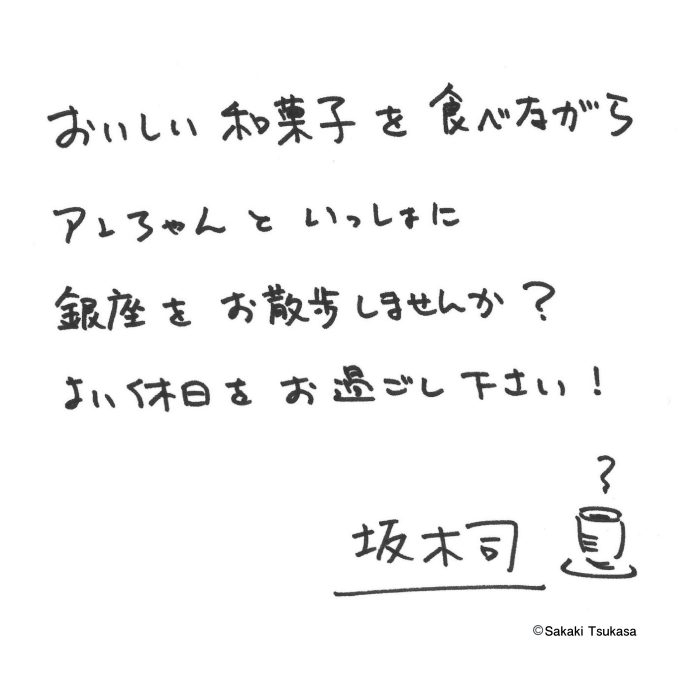 おいしい 和菓子 を 食べながら
アンちゃんと いっしょに
銀座を お散歩しませんか？
よい休日を お過ごし下さい！
坂木司
©Sakaki Tsukasa